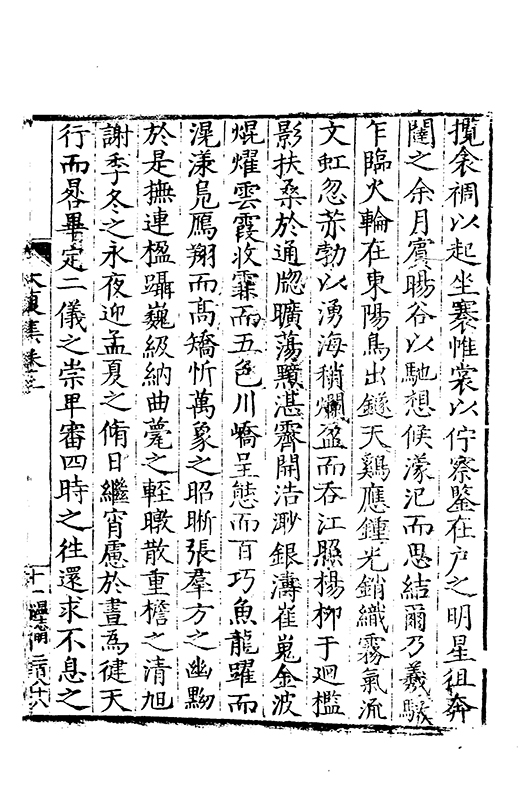 攬衾裯以起坐褰帷裳以佇察鑒在戶之明星徂奔
闥之余月賓暘谷以馳想候濛汜而思結爾乃羲馭
乍臨火輪在東陽烏出鐩天鷄應鍾光銷織霧氣流
文虹忽芾勃以湧海稍爛盈而吞江照楊柳于迴檻
影扶桑於通牕曠蕩顥湛霽開浩渺銀濤崔嵬金波
焜燿雲霞收霖而五色川嶠呈態而百巧魚龍躍而
滉漾鳧鴈翔而高矯忻萬象之昭晣張羣方之幽黝
於是撫連楹躡巍級納曲甍之輕暾散重檐之清旭
謝季冬之永夜迎孟夏之脩日繼宵慮於晝為健天
行而畧畢定二儀之崇卑審四時之往還求不息之
集卷三
十一